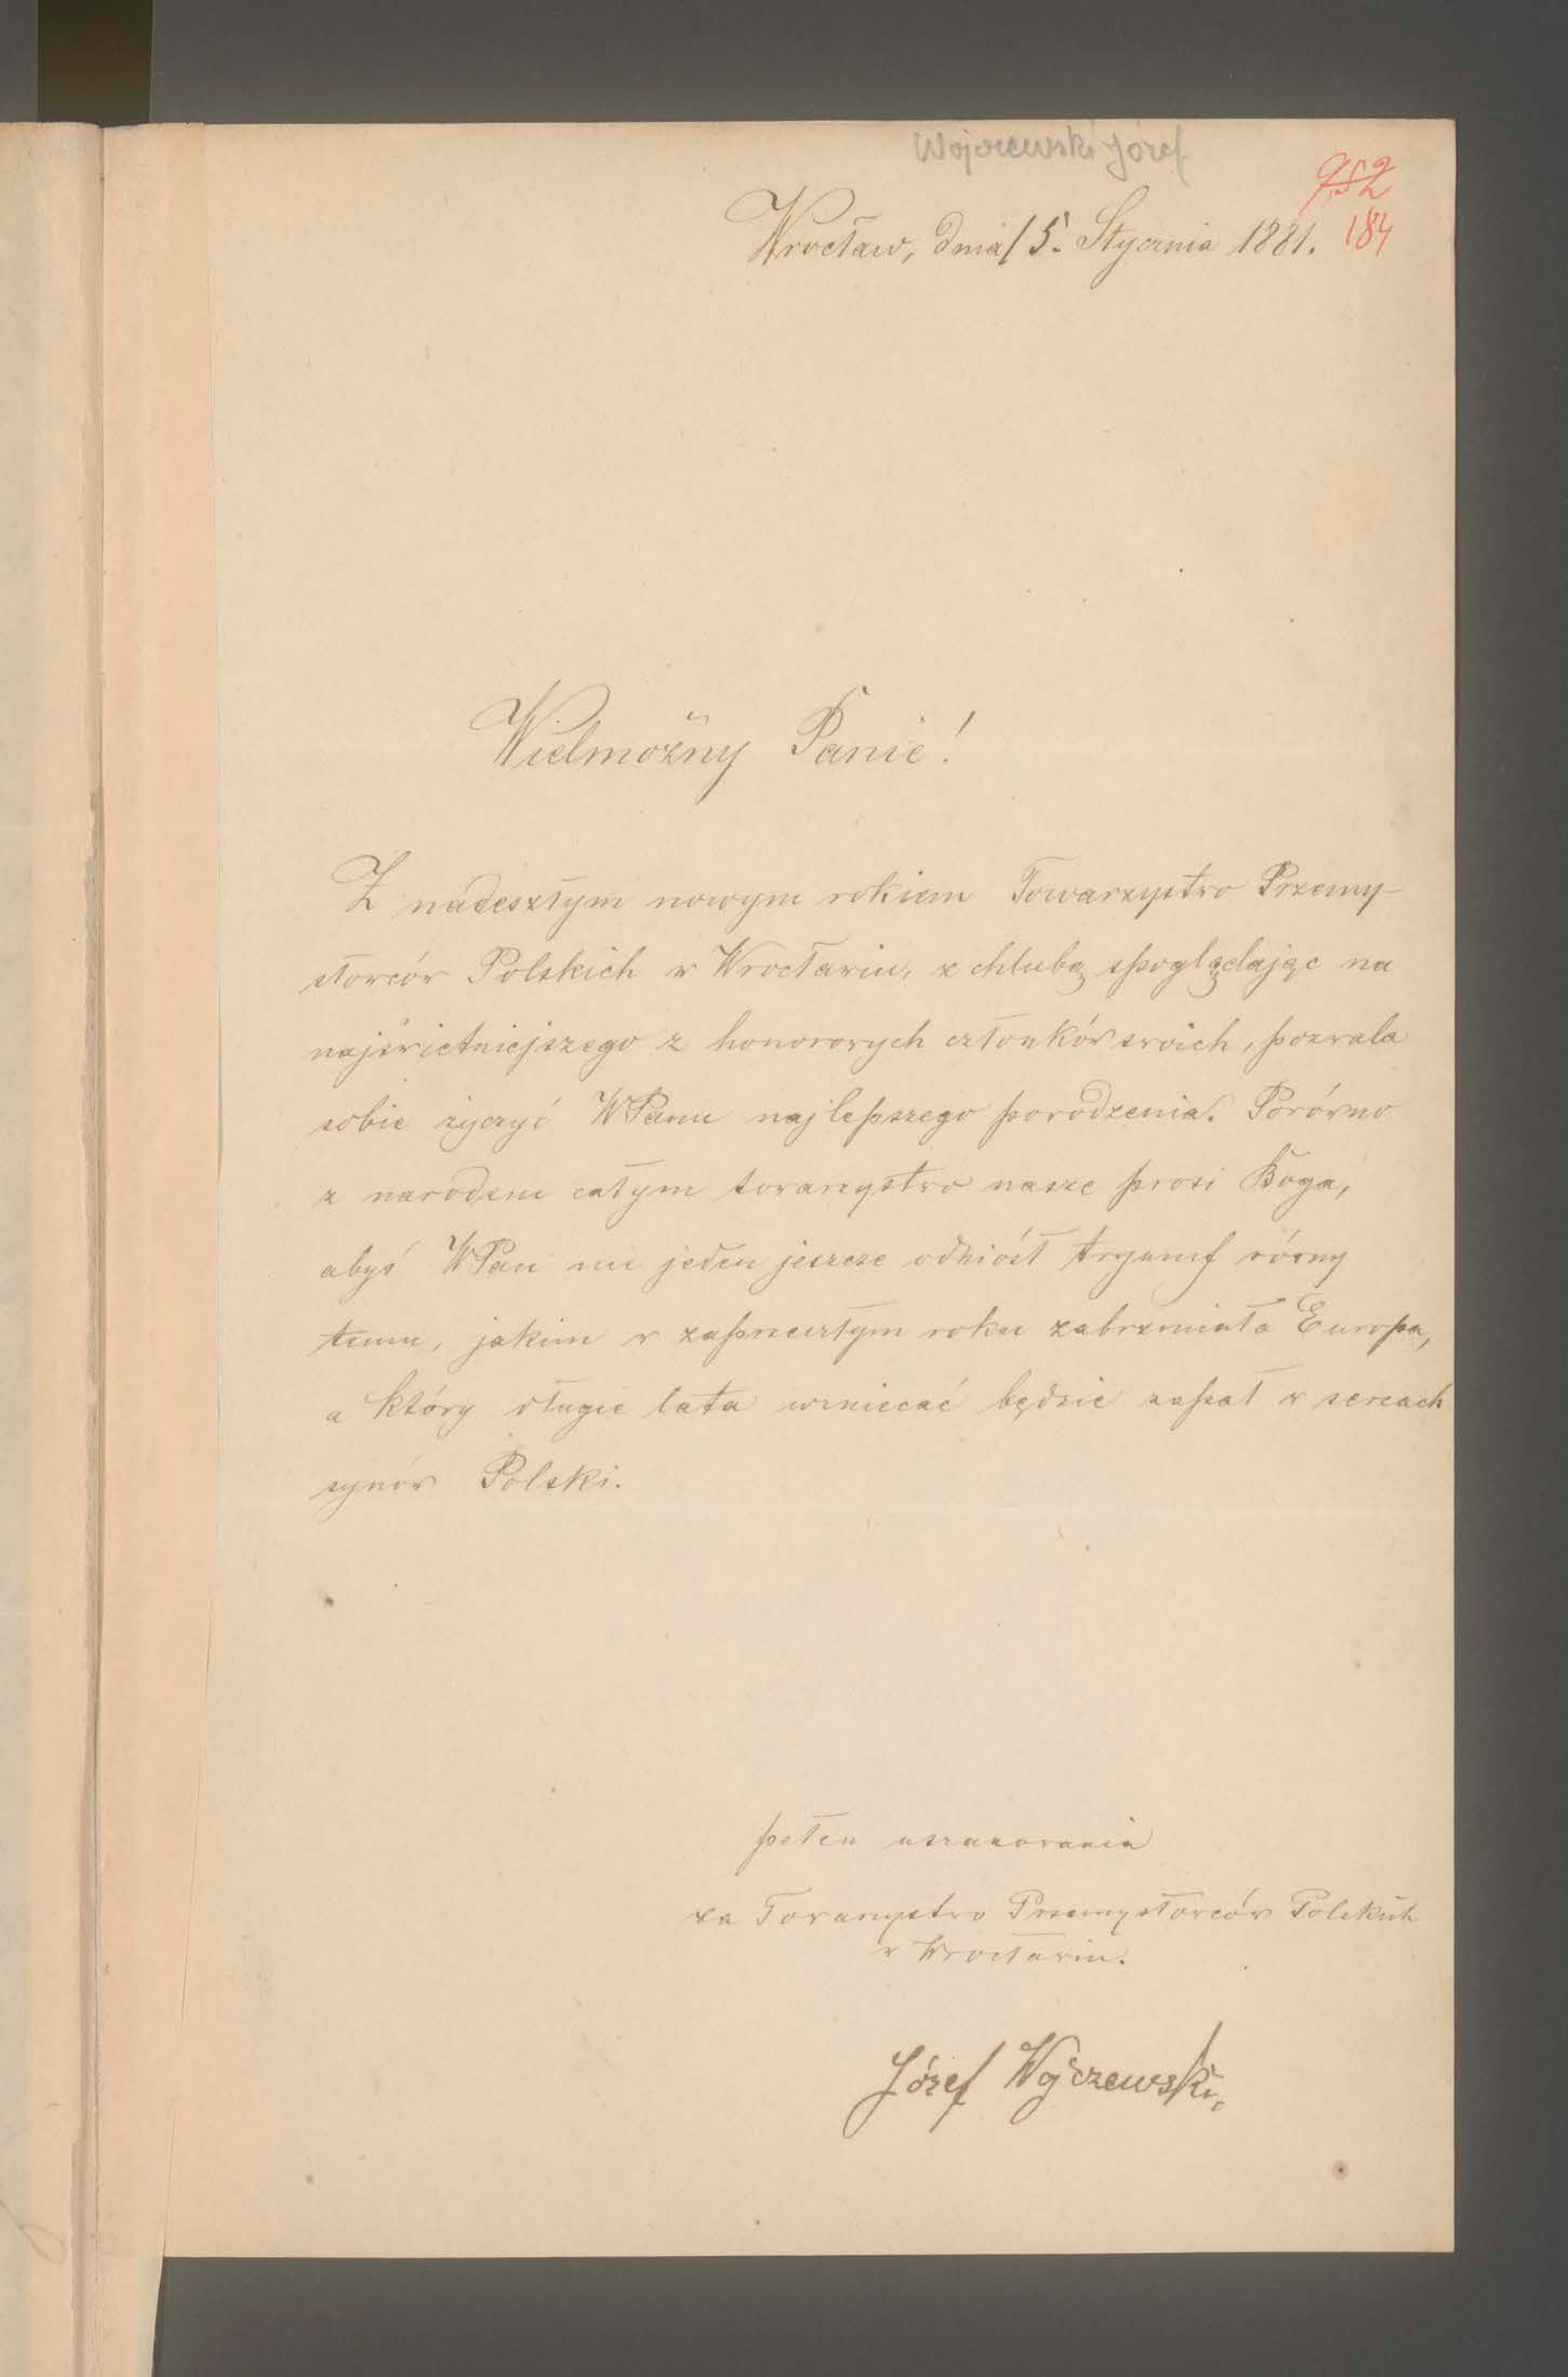 Wojczewski Józef
952
184
Wrocław, dnia 15. Stycznia 1881.
Wielmożny Panie!
Z nadeszłym nowym rokiem Towarzystwo Przemy-
słowców Polskich w Wrocławiu, z chlubą spoglądając na
najświetniejszego z honorowych członków swoich, pozwala
sobie życzyć WPanu najlepszego powodzenia. Porówno
z narodem całym towarzystwo nasze prosi Boga,
abyś WPan nie jeden jeszcze odniósł tryumf równy
temu, jakim w zaprzeszłym roku zabrzmiała Europa,
a który długie lata wzniecać będzie zapał w sercach
synów Polski.
pełen uszanowania
za Towarzystwo Przemysłowców Polskich
w Wrocławiu.
Józef Wojczewski,